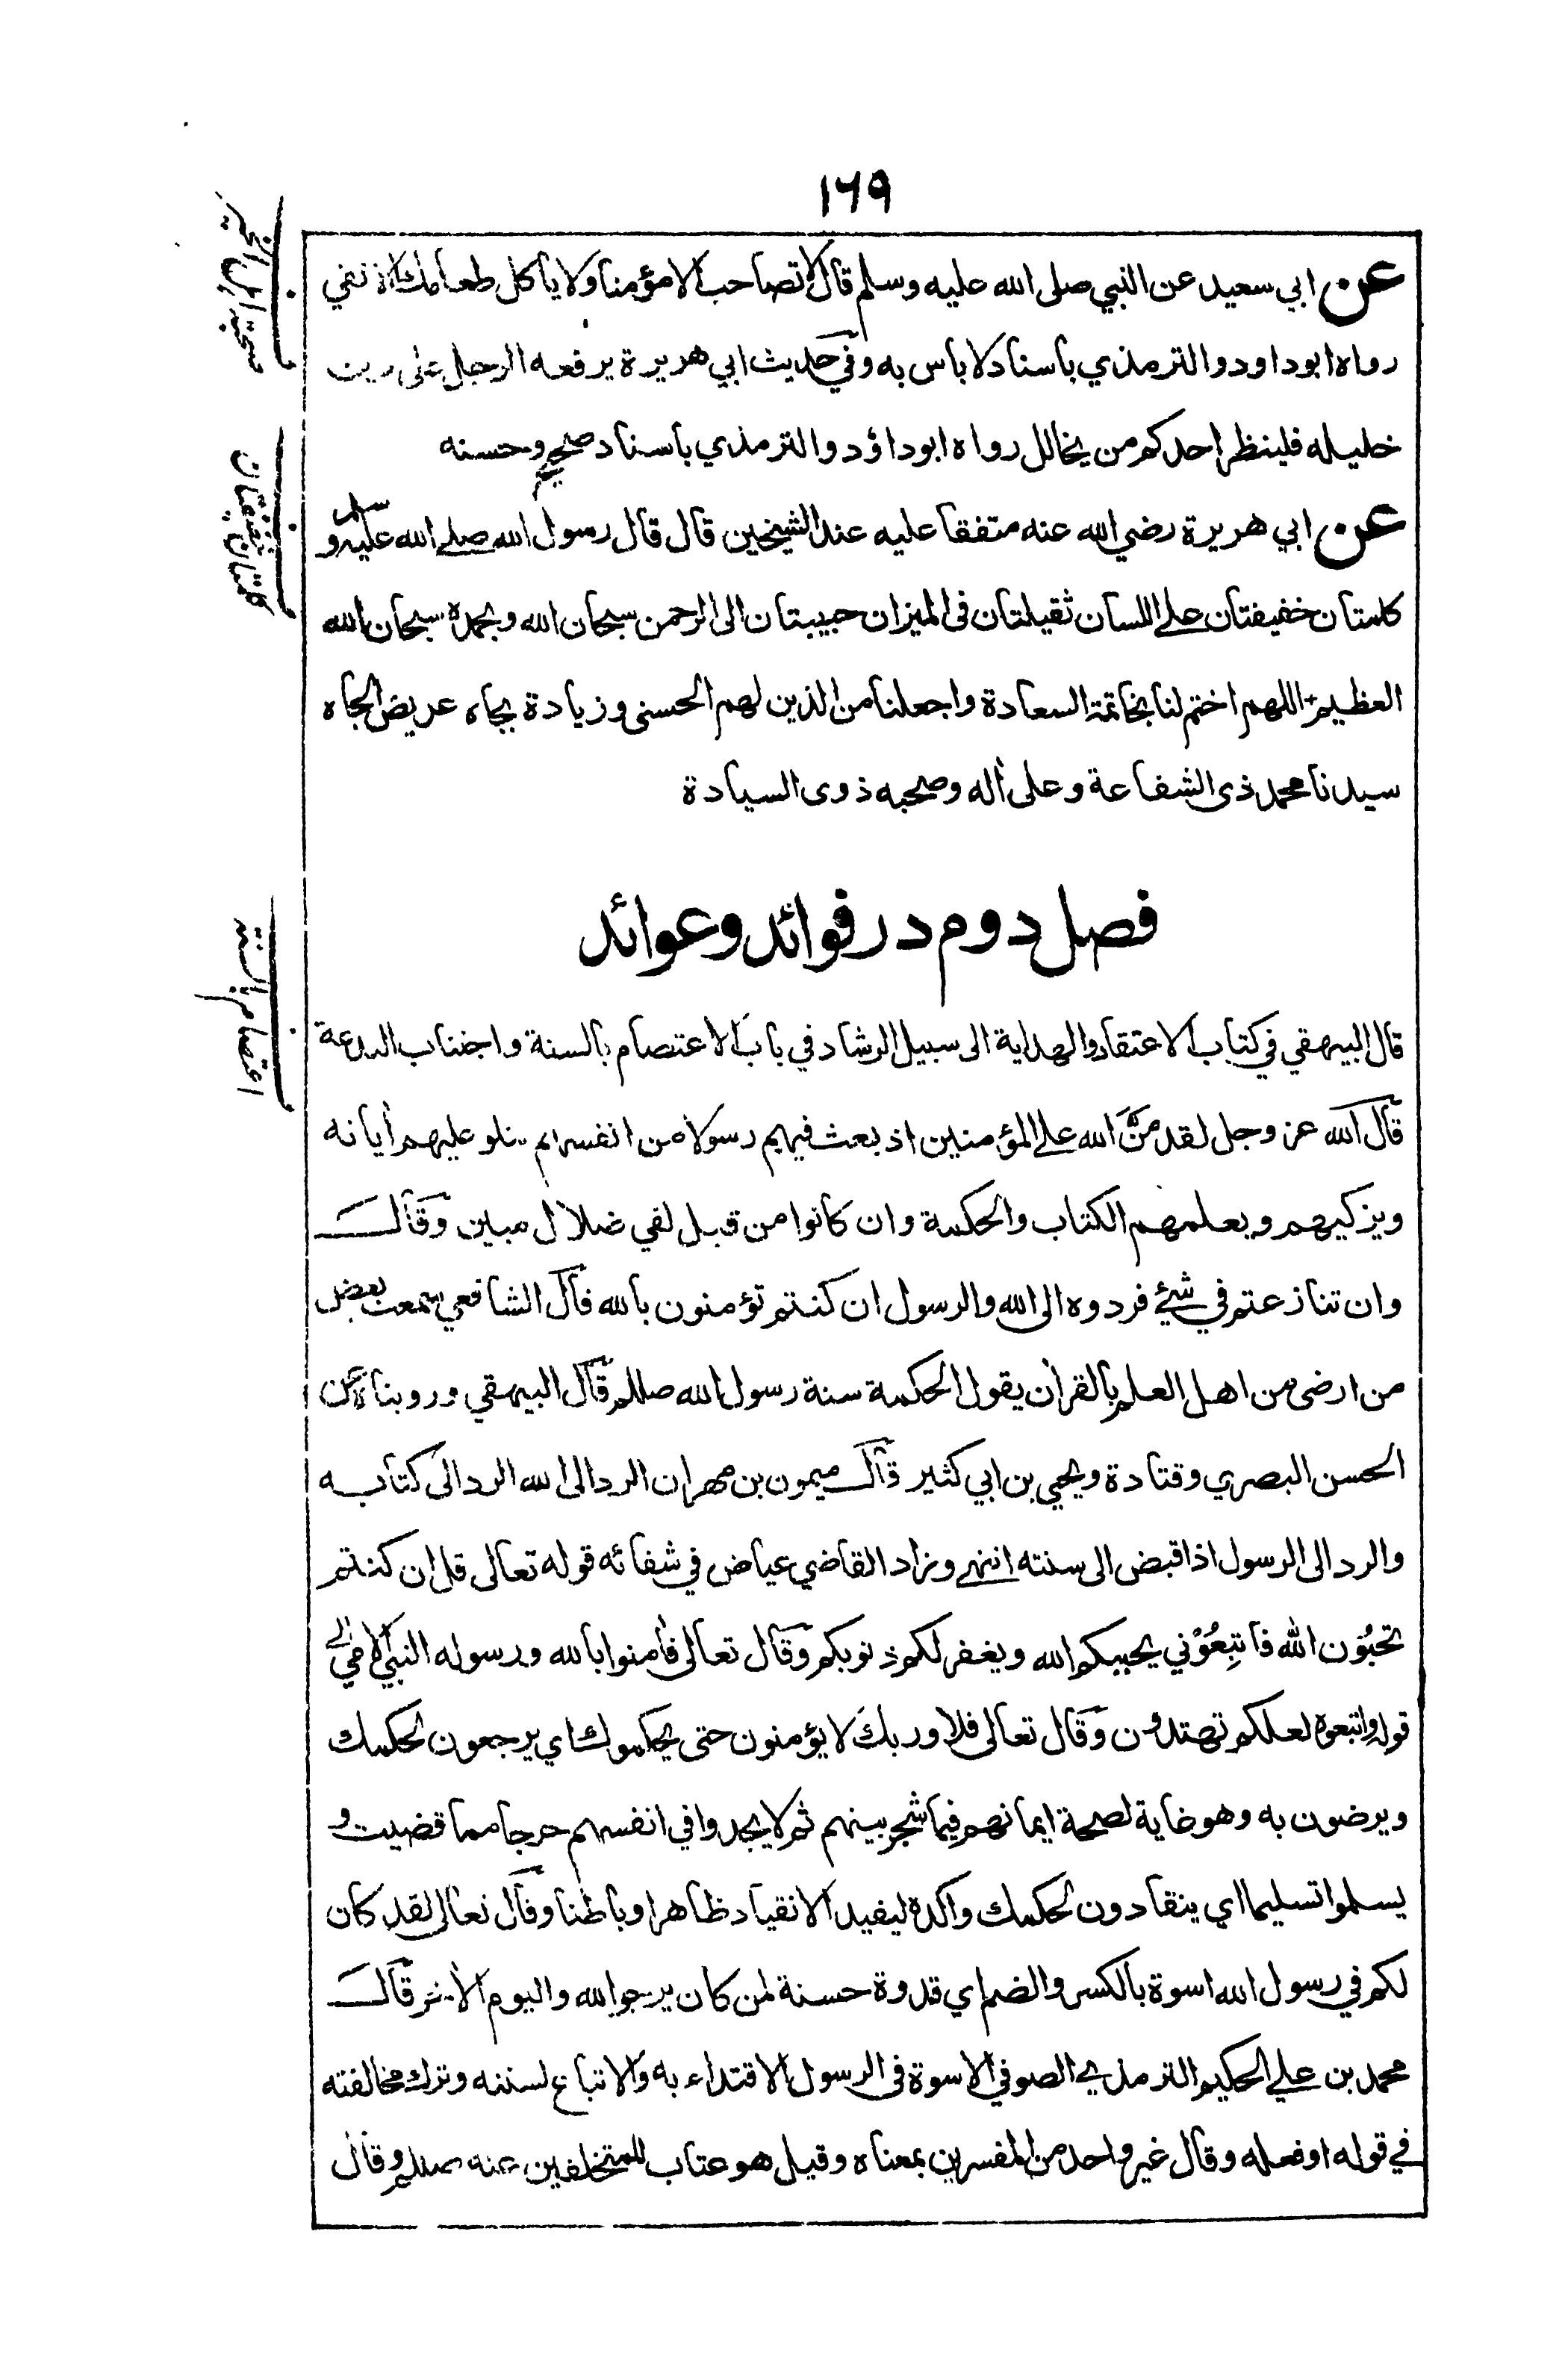 ۱۶۹
عن ابي سعيد عن النبي صلى الله عليه وسلم قال لا تصاحب الا مؤمنا ولا يأكل طعامك الا تقي
رواه ابوداود والترمذي بأسناد لا باس به وفي حديث ابي هريرة يرفعه الرجل على دين
خليله فلينظر احدكم من يخالل رواه ابوداؤد والترمذي باسناد صحيح وحسنه
عن ابي هريرة رضي الله عنه متفقا عليه عند الشيخين قال قال رسول الله صلے الله عليه و سلم
كلمتان خفيفتان علے اللسان ثقيلتان فى الميزان حبيبتان الى الرحمن سبحان الله وبحمده سبحان الله
العظيم اللهم اختم لنا بخاتمة السعادة واجعلنا من الذين لهم الحسنى وزيادة بجاه عريض الجاه
سيدنا محمد ذى الشفاعة وعلى أله وصحبه ذوى السيادة
فصل دوم در فوائد وعوائد
قال البيهقي في كتاب الاعتقاد والهداية الى سبيل الرشاد في باب الاعتصام بالسنة واجتناب البدعة
قال الله عز وجل لقد منَّ الله علے المؤمنين اذ بعث فيهم رسولا من انفسهم يتلو عليهم أياته
ويزكيهم ويعلمهم الكتاب والحكمة وان كانوا من قبل لفي ضلال مبين وقال
وان تنازعتم في شئ فردوه الى الله والرسول ان كنتم تؤمنون بالله قال الشافعي سمعت بعض
من ارضى من اهل العلم بالقرأن يقول الحكمة سنة رسول الله صللم قال البيهقي وروينا عن
الحسن البصري وقتادة ويحيي بن ابي كثير قال ميمون بن مهران الرد الى الله الرد الى كتابه
والرد الى الرسول اذا قبض الى سنته انتهے وزاد القاضي عياض في شفائه قوله تعالى قل ان كنتم
تحبُّون الله فاتبِعُوْني يحببكم الله ويغفر لكم ذنوبكم وقال تعالى فأمنوا بالله ورسوله النبي الامي الى
قوله واتبعوه لعلكم تهتدون وقال تعالى فلا وربك لا يؤمنون حتى يحكموك اي يرجعون لحكمك
ويرضون به وهو غاية لصحة ايمانهم فيما شجر بينهم ثم لا يجدوا في انفسهم حرجا مما قضيت و
يسلموا تسليما اي ينقادون لحكمك واكده ليفيد الانقياد ظاهرا وباطنا وقال تعالى لقد كان
لكم في رسول الله اسوة بالكسر والضم اي قدوة حسنة لمن كان يرجوا الله واليوم الأخر قال
محمد بن علے الحكيم الترمذي الصوفي الاسوة فى الرسول الاقتداء به والاتباع لسنته وترك مخالفته
في قوله او فعله وقال غير واحد من المفسرين بمعناه وقيل هو عتاب للمتخلفين عنه صللم وقال
صحبة اهل الخير
كلمتان خفيفتان
اعتصام بالسنة